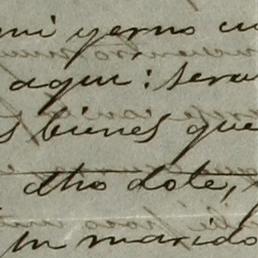 mi yerno
aqui: sera
s bienes que
dho dote,
tu marido